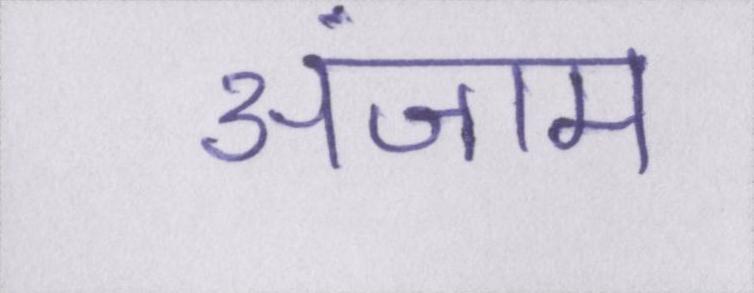 अंजाम